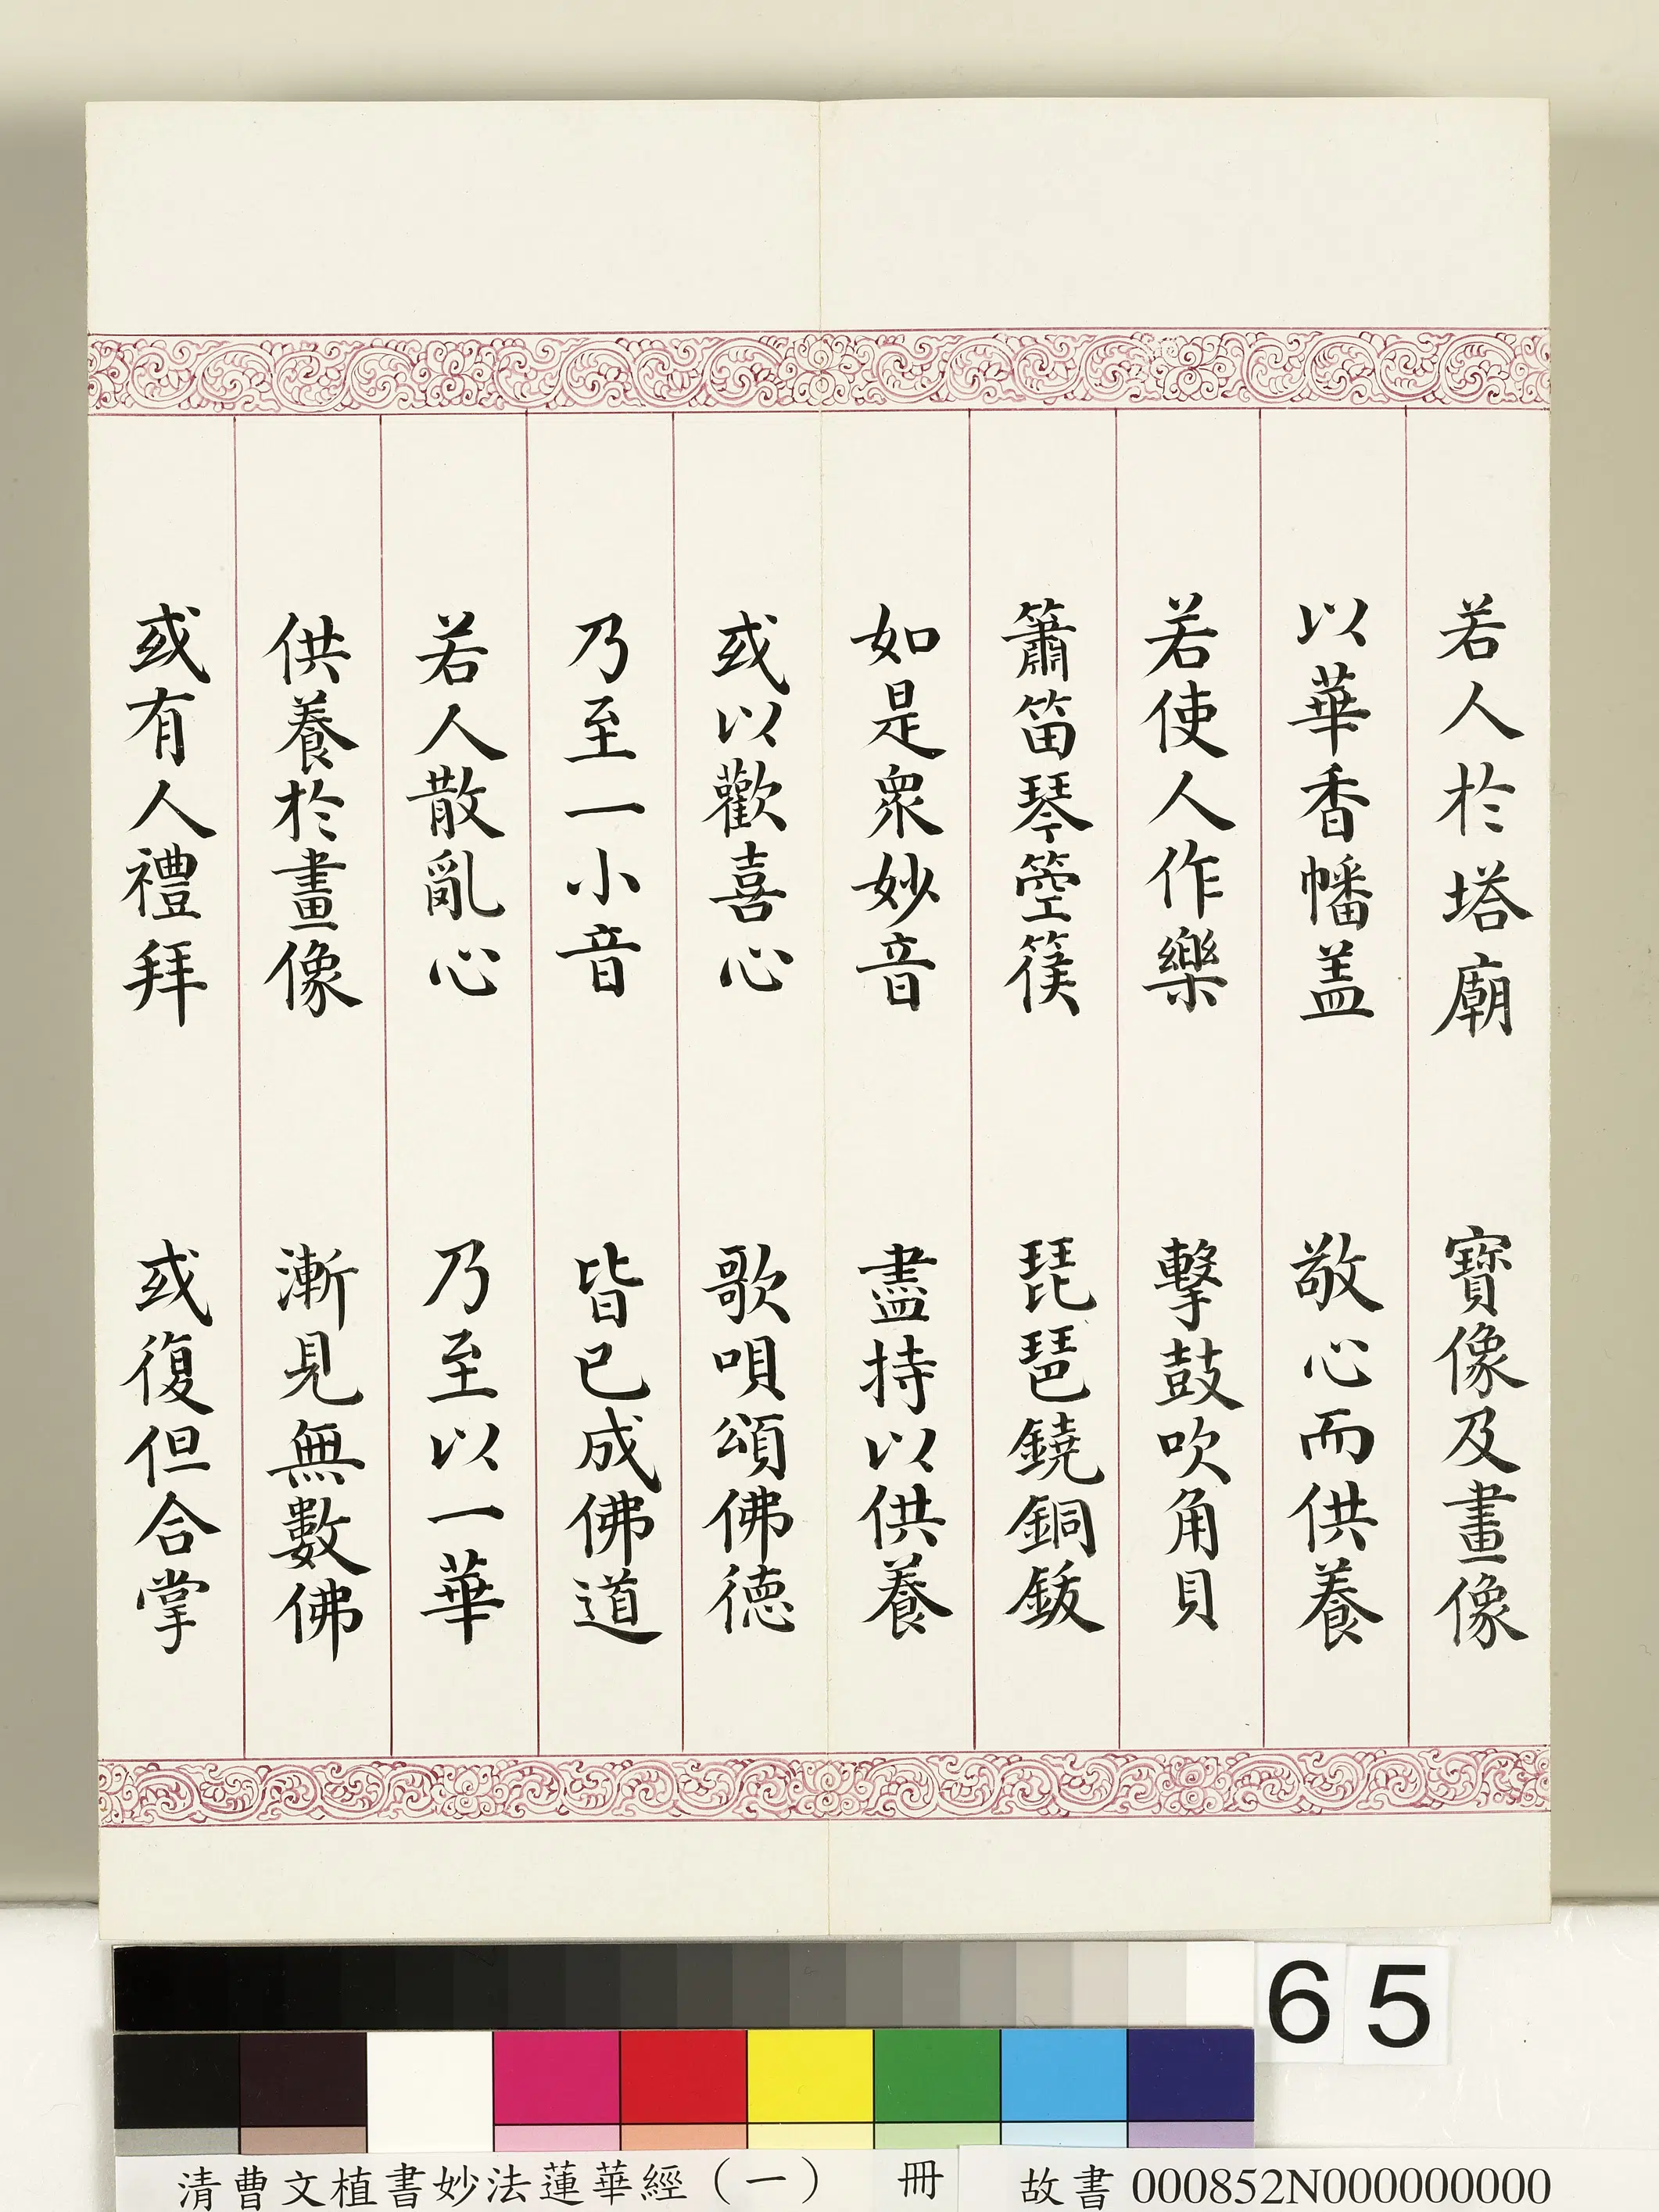 若人於塔廟 寶像及畫像
以華香幡盖 敬心而供養
若使人作樂 擊鼓吹角貝
簫笛琴箜篌 琵琶鐃銅鈸
如是衆妙音 盡持以供養
或以歡喜心 歌唄頌佛德
乃至一小音 皆已成佛道
若人散亂心 乃至以一華
供養於畫像 漸見無數佛
或有人禮拜 或復但合掌
65
清曹文植書妙法蓮華經（一） 冊 故書000852N000000000